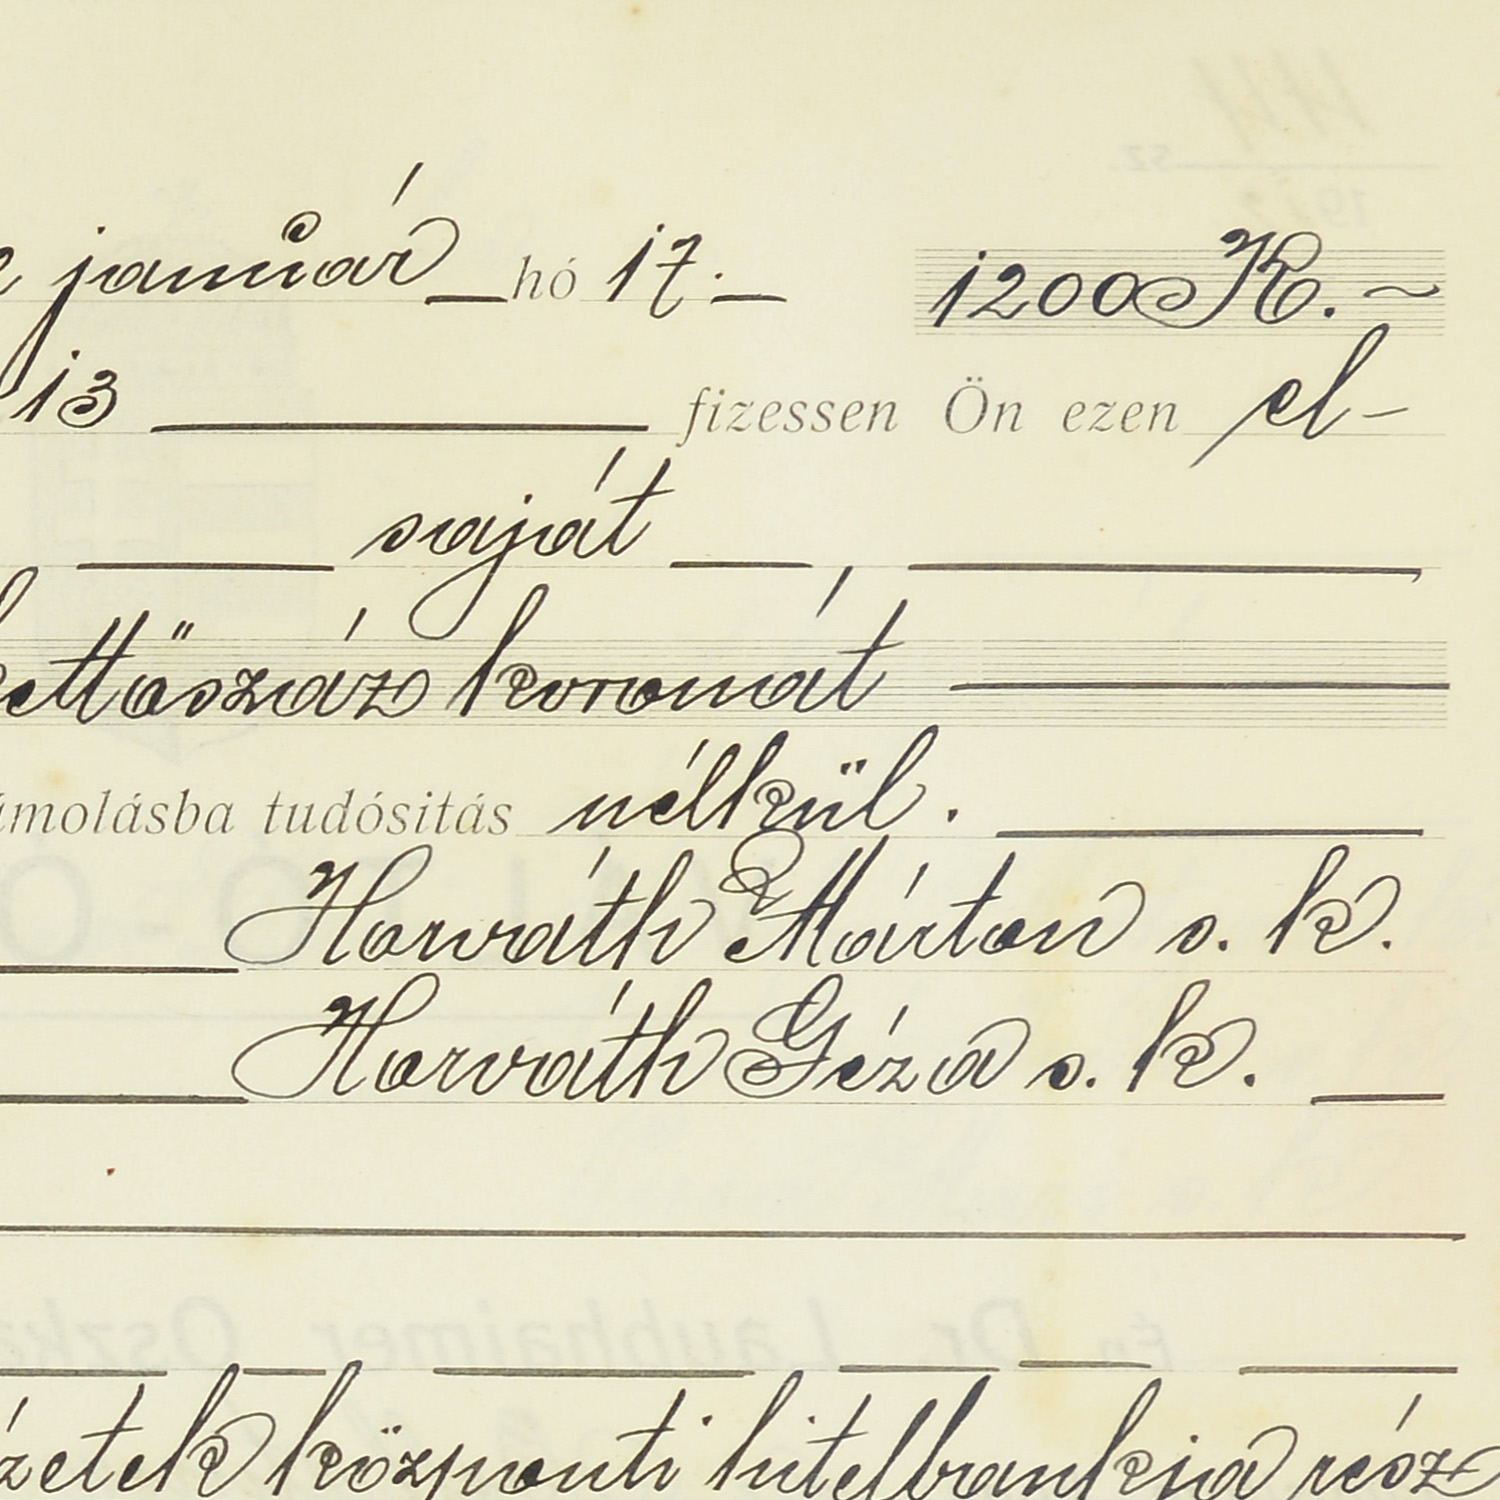 január hó 17. 1200 K.
13 fizessen Ön ezen el-
saját,
kettőszáz koronát
ámolásba tudósitás nélkül.
Horváth Márton s. k.
Horváth Géza s. k.
zetek központi hitelbankja rész